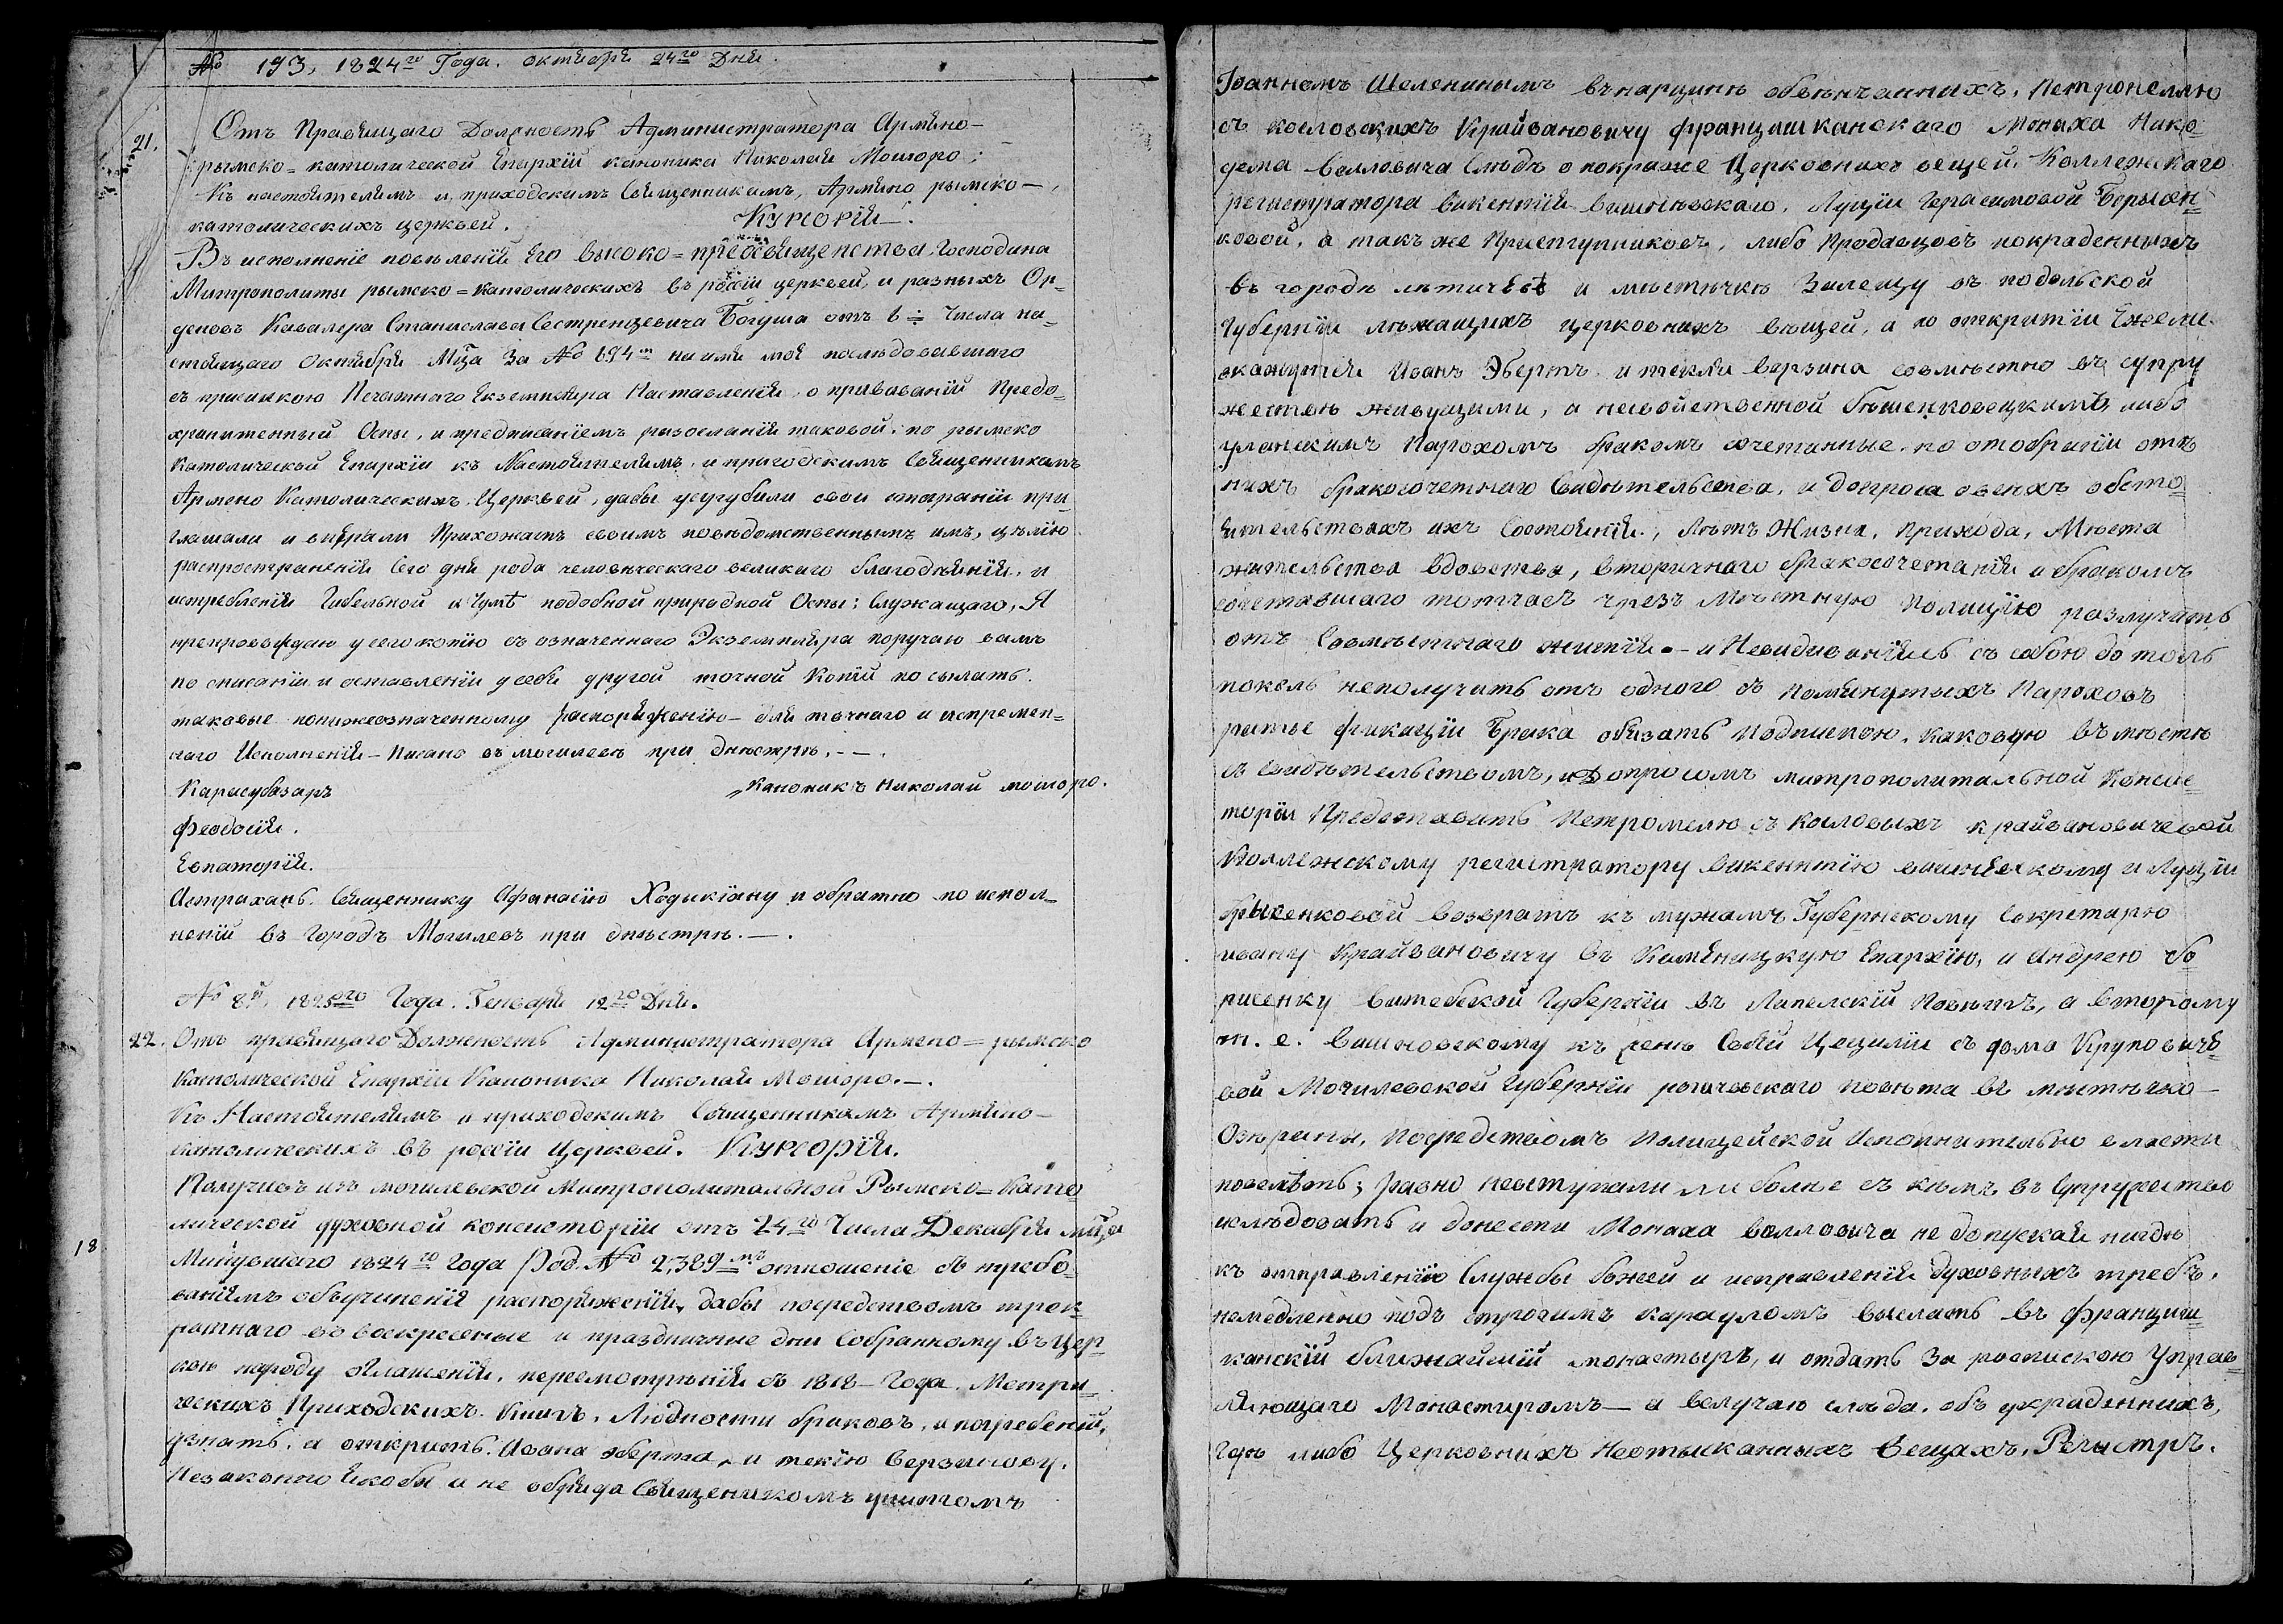 № 193, 1824го Года. октября 24го Дня.
21. Отъ Правящаго Должность Администратора Армяно-
рымско=католической Епархіи каноника Николая Мошоро;
Къ настоятелямъ и приходскимъ Священникамъ, Армяно рымско-
католическихъ церквей. Куррорія.
Въ исполненіе повеленія Его высоко=преосвященства, Господина
Митрополиты рымско=католическихъ въ россіи церквей, и разныхъ Ор-
деновъ Кавалера Станислава Сестренцевича Богуша отъ 6 Числа на-
стоящаго Октября Мца За № 894 на имя мое последовавшаго
съ присылкою Печатнаго Екземпляра Наставленія, о прививаніи Предо-
хранителний Оспы, и предписаніемъ разосланія таковой по рымско
Католической Епархіи къ Настоятелямъ, и приходскимъ Священникамъ
Армено Католическихъ Церквей, дабы усугубили свои старанія при-
глашали и Прихожанъ своимъ повѣдомственнымъ имъ, цѣлію
распространенія Сего для рода человѣческаго великаго благодѣянія, и
истребленія Гибельной и Чумѣ подобной природной Оспы; Служащаго, Я
препровождаю у сего копію съ означеннаго Экземпляра поручаю вамъ
по списаніи и оставленіи у себя другой точной Копіи посылать
таковые понижеозначенному распоряженію - для точнаго и непремен-
наго Исполненія - Писано въ могилевѣ при днѣстрѣ. - .
Карасубазаръ Каноникъ Николай мошоро.
Феодосія.
Евпаторія.
Астрахань. Священнику Афанасію Ходикіану и обратно по испол-
неніи въ Городъ Могилевъ при днѣстрѣ. - .
№ 8й, 1825го Года. Генваря 12го Дня.
22. Отъ правящаго Должность Администратора Армено=рымско
католической Епархіи Каноника Николая Мошоро. - .
Къ Настоятелямъ и приходскимъ Священникамъ Армяно-
католическихъ въ россіи Церквей. Куррорія.
Получивъ изъ могилевской Митрополитальной Рымско=Като
лической духовной консисторіи отъ 24го Числа Декабря мца
Минувшаго 1824го Года Под. № 2,389мъ отношеніе съ требо-
ваніемъ объучиненія распоряженія, дабы посредствомъ трок-
ратнаго въ воскресеные и праздничные дни Собранному въ Цер-
кви народу оглашенія, пересмотрѣнія съ 1818 - Года. Метри-
ческихъ Приходскихъ Книгъ. Людности браковъ, и погребеній,
узнать, и открыть. Ивана эберта, и теклю Верзилову.
Незаконно якобы и не обряда Священикомъ унитомъ
18
Іоанномъ Шеленинымъ обвѣнчанныхъ, Петронеллю
съ кословскихъ Крайвановичу францишканскаго Монаха Нико-
дема Волловича Слѣдъ о покраже Церковныхъ вещей, Коллежскаго
регистратора викентія вишнѣвскаго, Луціи Герасимовой Борысен-
ковой, а такъ же Приступниковъ, либо Продавцовъ покраденныхъ
въ городѣ лѣтичевѣ и мѣстѣчкѣ Зилецу въ подольской
Губерніи лѣжащихъ церковныхъ вѣщей, а по открытіи Ежели
окажутся Иванъ Эбертъ и текля верзина совмѣстно въ супру
жествѣ живущими, а несвойственной бѣшенковецкимъ либо
уланскимъ Парохомъ бракомъ сочетанные по отобраніи отъ
нихъ бракосочетнаго Свидѣтельства, и Допроса овсехъ обсто-
ятельствахъ ихъ Состоянія, лѣтъ Жизни, Прихода, Мѣста
жительства вдовства, вторичнаго бракосочетанія и бракомъ
сочетавшаго тотчасъ чрезъ Мѣстную Полицію разлучить
отъ Совмѣстнаго житія - и Невидиванія съ собою до толь
поколь неполучить отъ одного съ помянутыхъ Пароховъ
ратьефикаціи Брака обязать Подпискою, каковую въмѣстѣ
съ свидѣтельствомъ, и Допросомъ митрополитальной Консис-
торіи Представить Петромелю съ Кословыхъ крайвановичевой
Коллежскому регистратору викентію вишнѣвскому и Луціи
брысенковой возвратъ къ мужамъ Губернскому Секретарю
ивану Крайвановичу въ Каменицкую Епархію, и Андрею бо-
рисенку витебской Губерніи въ Лапелскій Повѣтъ, а второму
т. е. Вишновскому къ Женѣ Своей Цециліи съ дома Круповиче-
вой Могилевской Губерніи рыгачовскаго повѣта въ мѣстѣчко -
Озераны, посредствомъ Полицейской Исполнительно власти
повелѣть; равно невступали ли болѣе съ кѣмъ въ Супружество
изслѣдовать и донести Монаха волловича не допуская нигдѣ
къ отправленію Службы божей и исправленія духовныхъ требъ,
немедленно подъ строгимъ карауломъ выслать въ францыш-
канскій ближайшій монастырь, и отдать За роспискою Управ-
ляющаго Монастиромъ - а вслучаю слѣда, объ украденныхъ,
Гдѣ либо Церковныхъ Неотысканныхъ вещахъ, Регистръ.